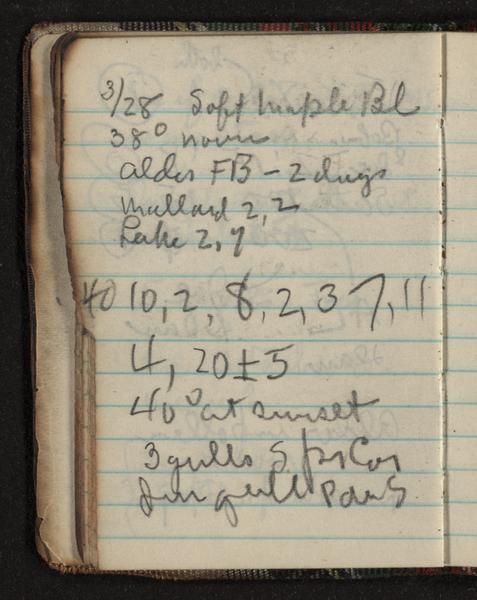 3/28 Soft Maple Bl
38° noon
alder FB - 2 days
Mallard 2, 2
Lake 2, 7
40 10, 2, 8, 2, 3 7, 11
4, 20 ± 5
40° at sunset
3 gulls S
gull